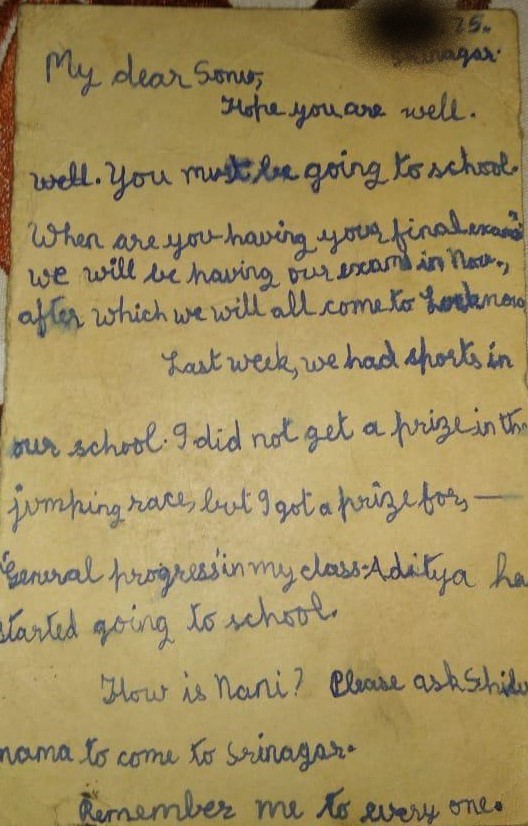 75.
Srinagar.
My dear Sonu,
Hope you are well.
well. You must be going to school.
When are you having your final exams?
we will be having our exams in Nov.,
after which we will all come to Lucknow
Last week, we had sports in
our school. I did not get a prize in the
jumping race, but I got a prize for, —
"General progress" in my class. Aditya ha
started going to school.
How is Nani? Please ask
mama to come to Srinagar.
Remember me to every one.